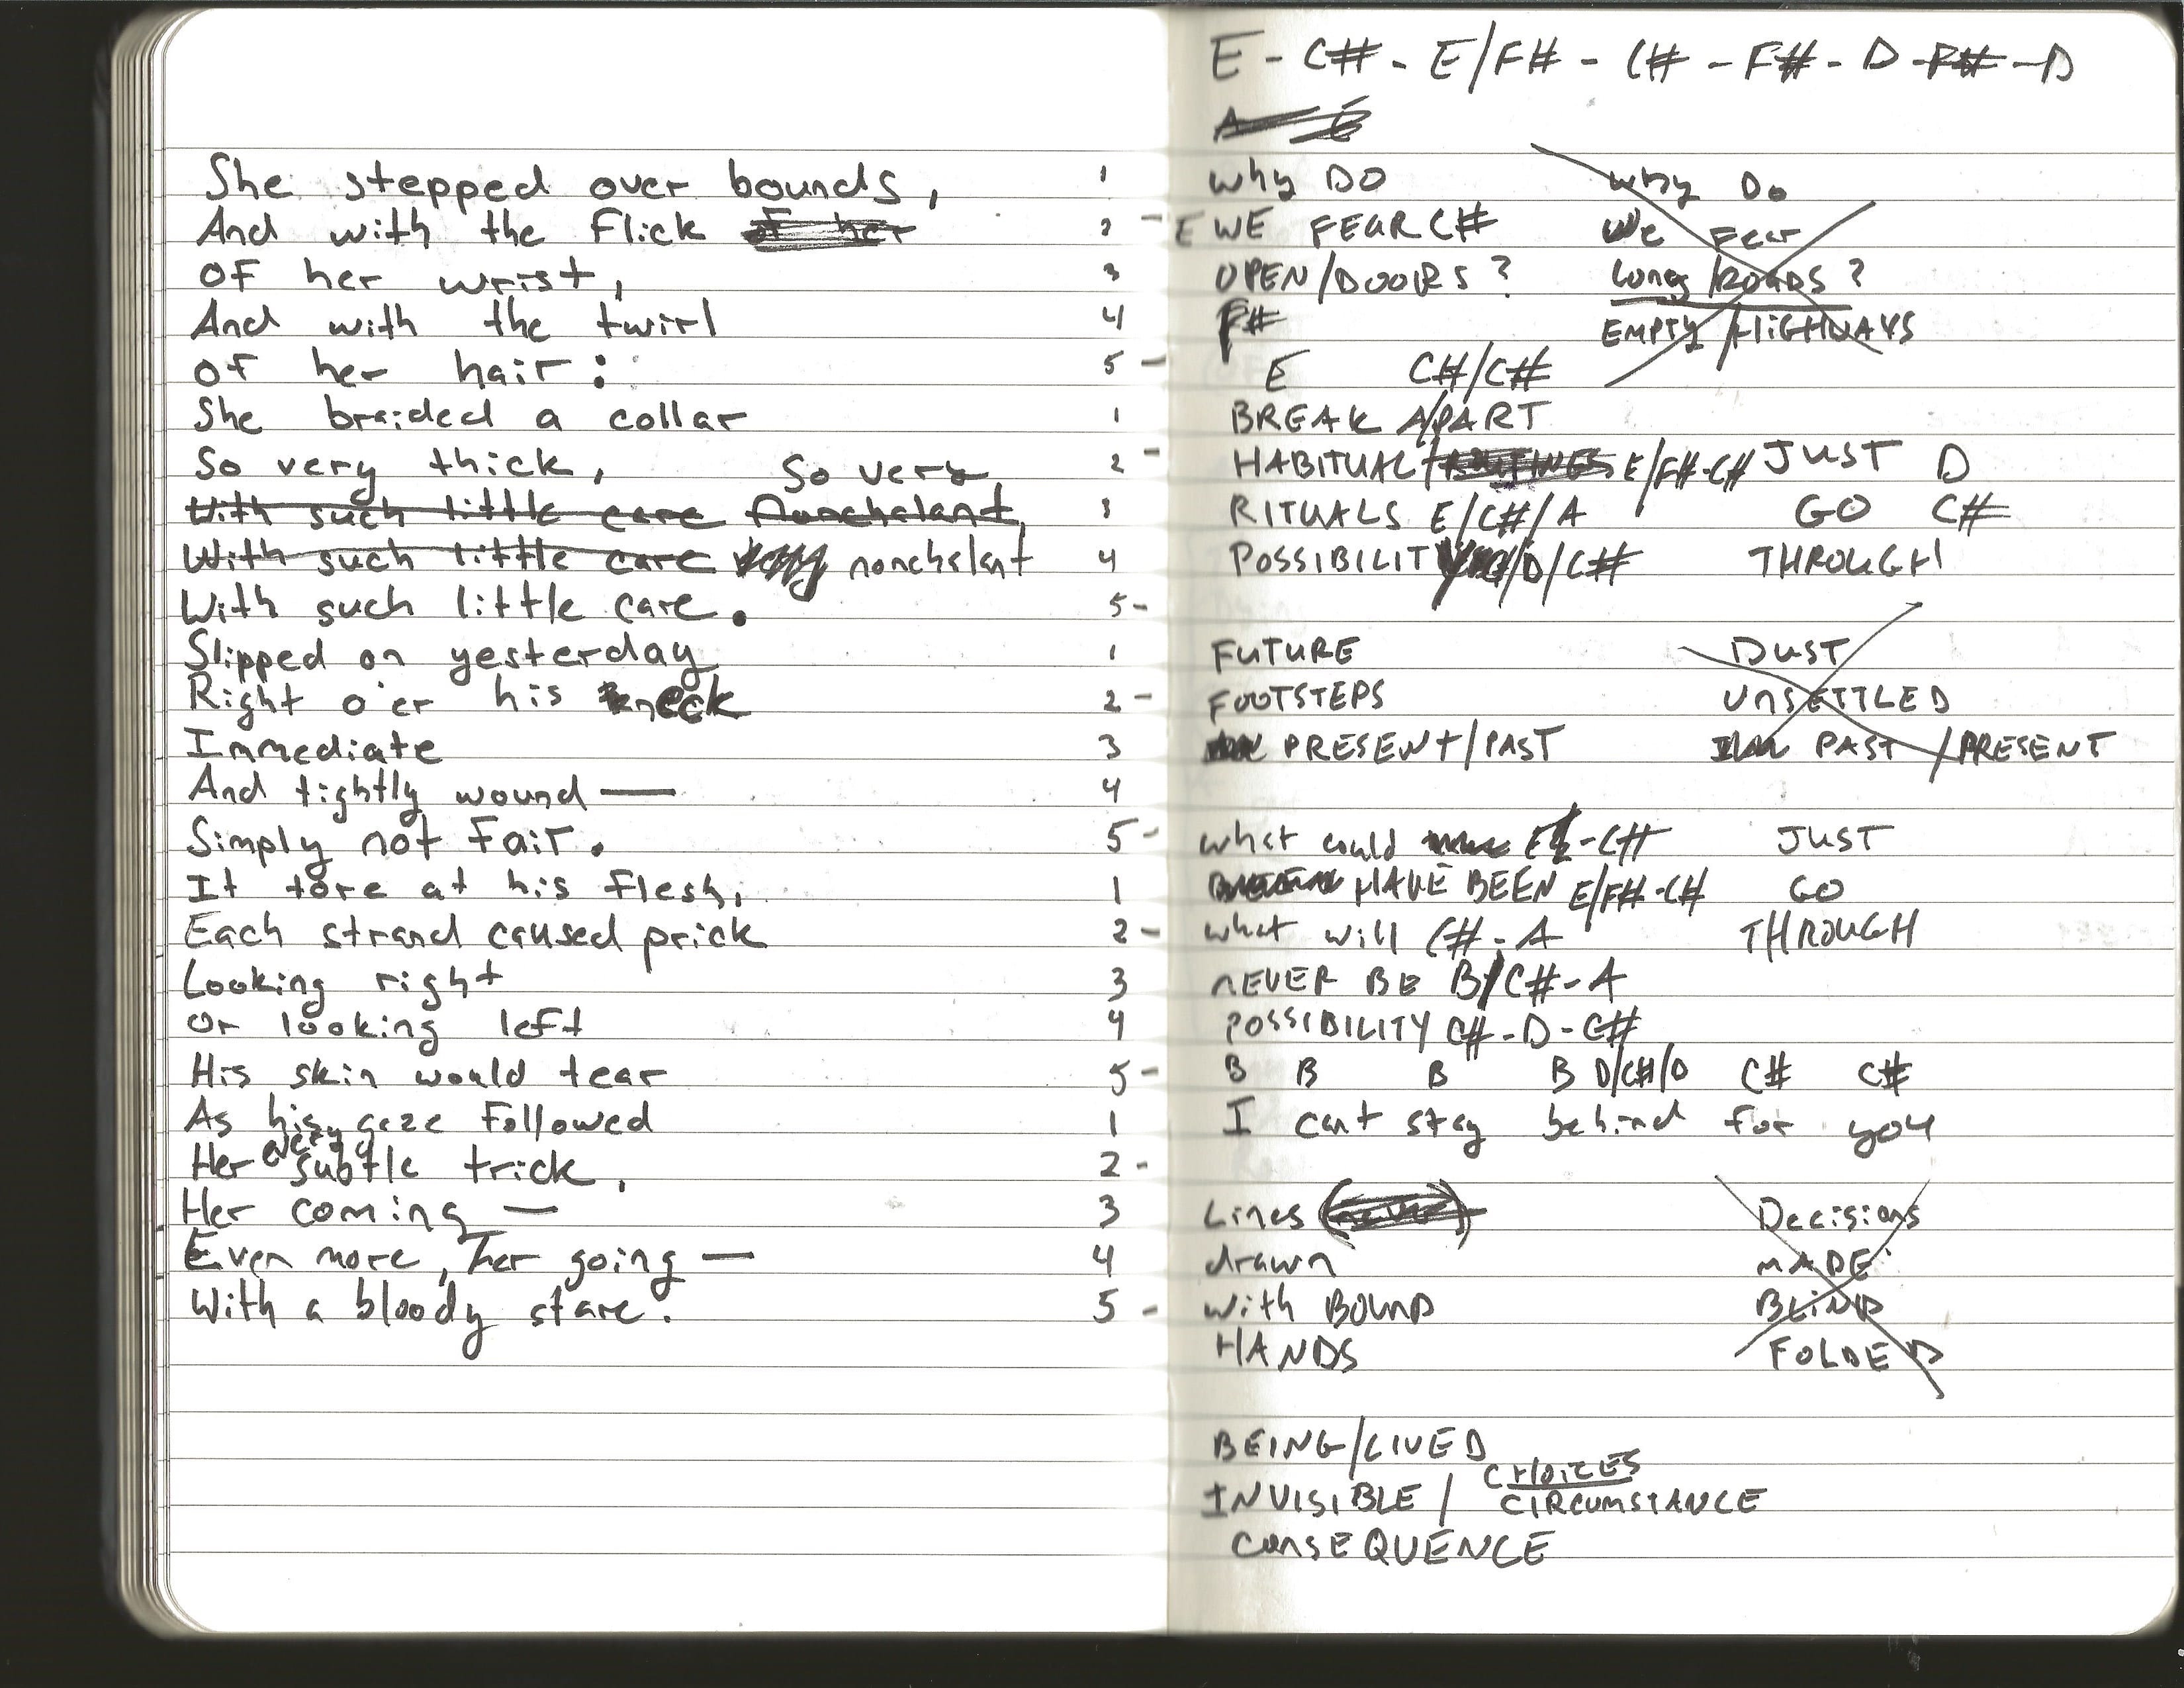 She stepped over bounds, 1
And with the flick of her 2 -
of her wrist, 3
And with the twirl 4
of her hair: 5 -
She braided a collar 1
So very thick, 2 -
So very
With such little care Nonchalant, 3
With such little care nonchalant 4
With such little care. 5 -
Slipped on yesterday 1
Right o'er his neck 2 -
Immediate 3
And tightly wound — 4
Simply not fair. 5 -
It tore at his flesh, 1
Each strand caused prick 2 -
Looking right 3
Or looking left 4
His skin would tear 5 -
As his gaze followed 1
every
Her subtle trick, 2 -
Her coming — 3
Even more, her going — 4
With a bloody stare. 5 -
E - C# - E/F# - C# - F# - D - F# - D
A E
Why DO
E WE FEAR C#
OPEN/DOORS?
F#
Why Do
We Fear
Long/ROADS?
EMPTY/HIGHWAYS
E C#/C#
BREAK A/PART
HABITUAL/ROUTINES E/F#-C#
RITUALS E/C#/A
POSSIBILITY /D/C#
JUST D
GO C#
THROUGH
FUTURE
FOOTSTEPS
PRESENT/PAST
DUST
UNSETTLED
IN PAST/PRESENT
what could E-C#
HAVE BEEN E/F#-C#
what will C#-A
NEVER BE B/C#-A
POSSIBILITY C#-D-C#
JUST
GO
THROUGH
B B B B D/C#/D C# C#
I cant stay behind for you
Lines
drawn
with BOUND
HANDS
Decisions
MADE
BLIND
FOLDED
BEING/LIVED
CHOICES
INVISIBLE / CIRCUMSTANCE
CONSEQUENCE